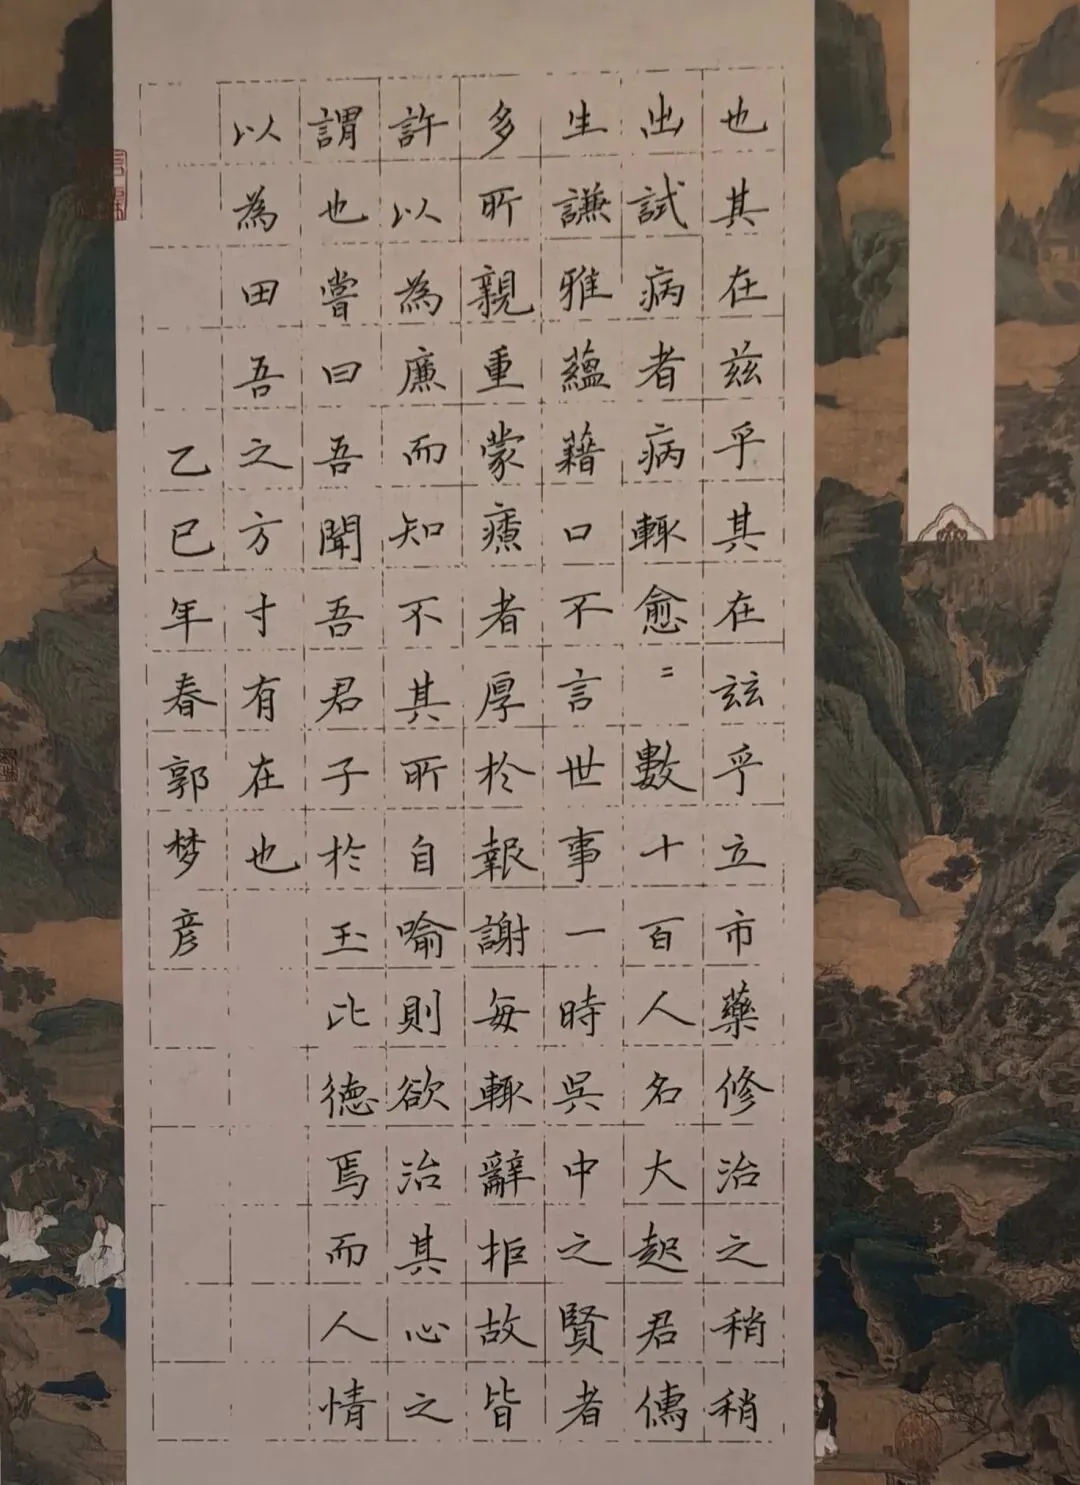 也其在兹乎其在玆乎立市藥修治之稍稍
出試病者病輒愈〻數十百人名大起君儁
生謙雅蘊藉口不言世事一時吳中之賢者
多所親重蒙療者厚於報謝每輒辭拒故皆
許以為廉而知不其所自喻則欲治其心之
謂也嘗曰吾聞吾君子於玉比德焉而人情
以為田吾之方寸有在也
乙巳年春郭梦彦